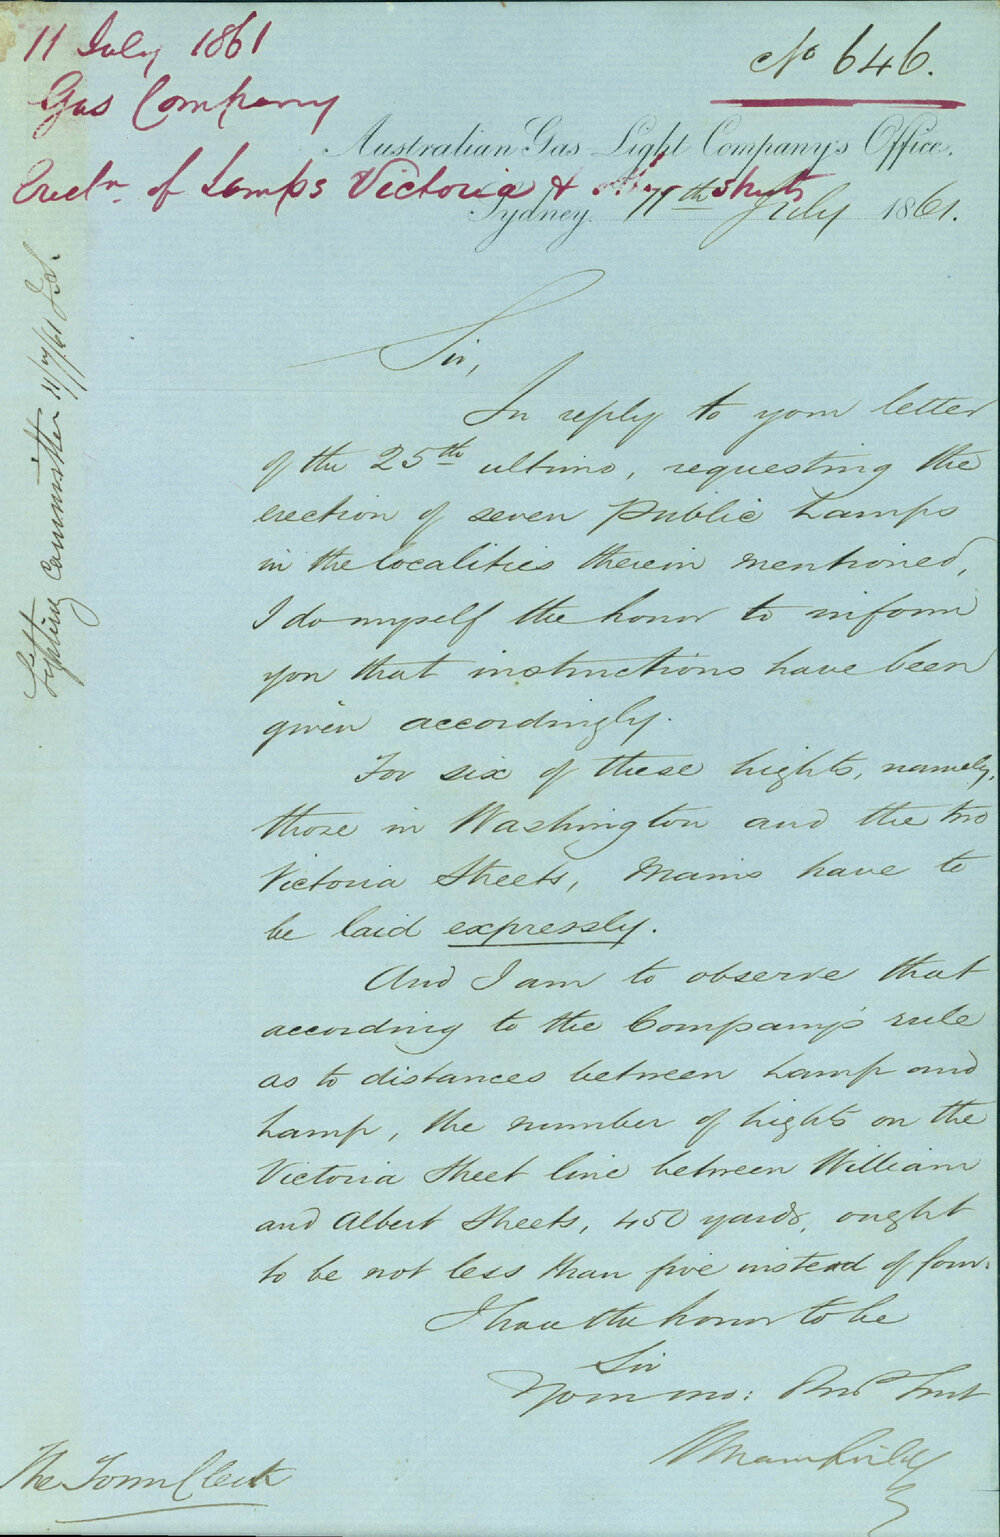 11 July 1861
Gas Company
Erectn. of Lamps Victoria & other Streets
No 646.
Australian Gas Light Company's Office,
Sydney, 11th July 1861.
Lighting Committee 11/7/61
Sir,
In reply to your letter
of the 25th ultimo, requesting the
erection of seven Public Lamps
in the localities therein mentioned,
I do myself the honor to inform
you that instructions have been
given accordingly.
For six of these lights, namely,
those in Washington and the two
Victoria Streets, Mains have to
be laid expressly.
And I am to observe that
according to the Company's rule
as to distances between Lamp and
Lamp, the number of lights on the
Victoria Street line between William
and Albert Streets, 450 yards, ought
to be not less than five instead of four.
I have the honor to be
Sir
Your mo: Obt Servt
The Town Clerk